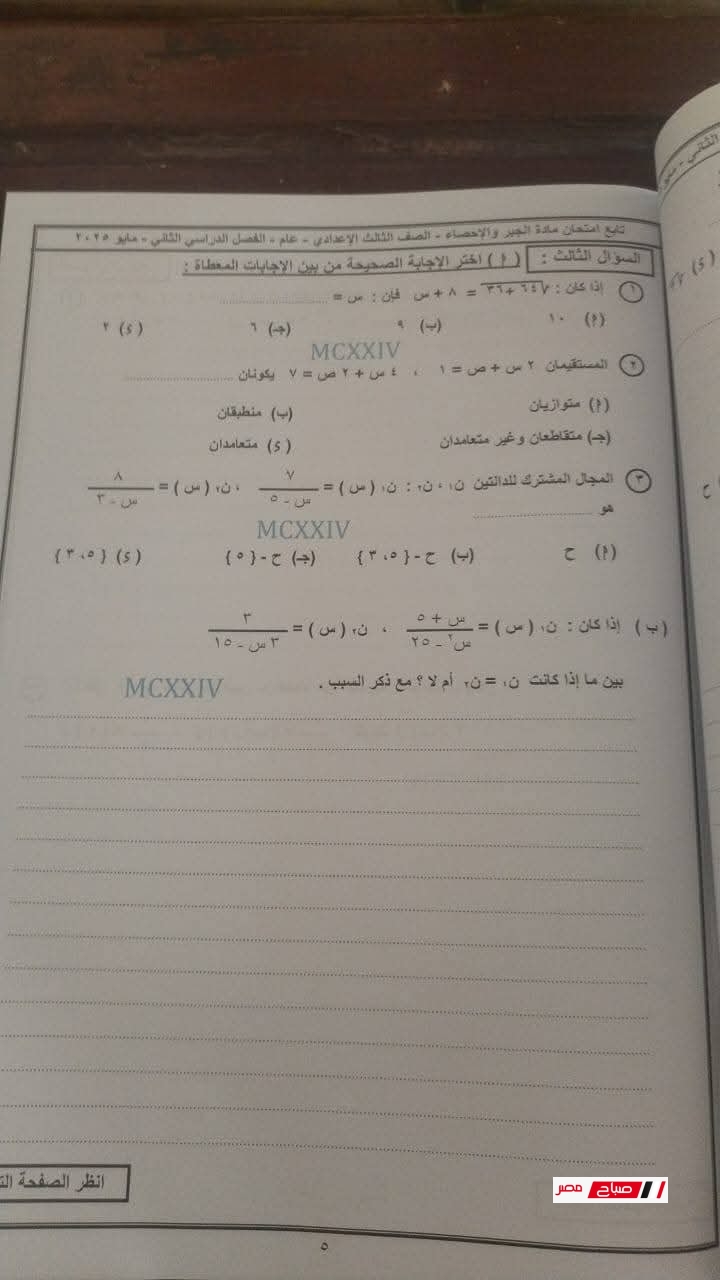 تابع امتحان مادة الجبر والإحصاء - الصف الثالث الإعدادي - عام - الفصل الدراسي الثاني - مايو ٢٠٢٥
السؤال الثالث : ( أ ) اختر الإجابة الصحيحة من بين الإجابات المعطاة :
١ إذا كان : √٦٤ + ٣٦ = ٨ + س فإن : س = ............
(أ) ١٠ (ب) ٩ (جـ) ٦ (د) ٢
MCXXIV
٢ المستقيمان ٢ س + ص = ١ ، ٤ س + ٢ ص = ٧ يكونان ............
(أ) متوازيان (ب) منطبقان
(جـ) متقاطعان وغير متعامدان (د) متعامدان
٣ المجال المشترك للدالتين ن١ ، ن٢ : ن١ ( س ) = ٧ / س - ٥ ، ن٢ ( س ) = ٨ / س - ٣
هو ............
MCXXIV
(أ) ح (ب) ح - { ٥ ، ٣ } (جـ) ح - { ٥ } (د) { ٥ ، ٣ }
( ب ) إذا كان : ن١ ( س ) = س + ٥ / س٢ - ٢٥ ، ن٢ ( س ) = ٣ / ٣ س - ١٥
بين ما إذا كانت ن١ = ن٢ أم لا ؟ مع ذكر السبب .
MCXXIV
انظر الصفحة
صباح مصر
٥